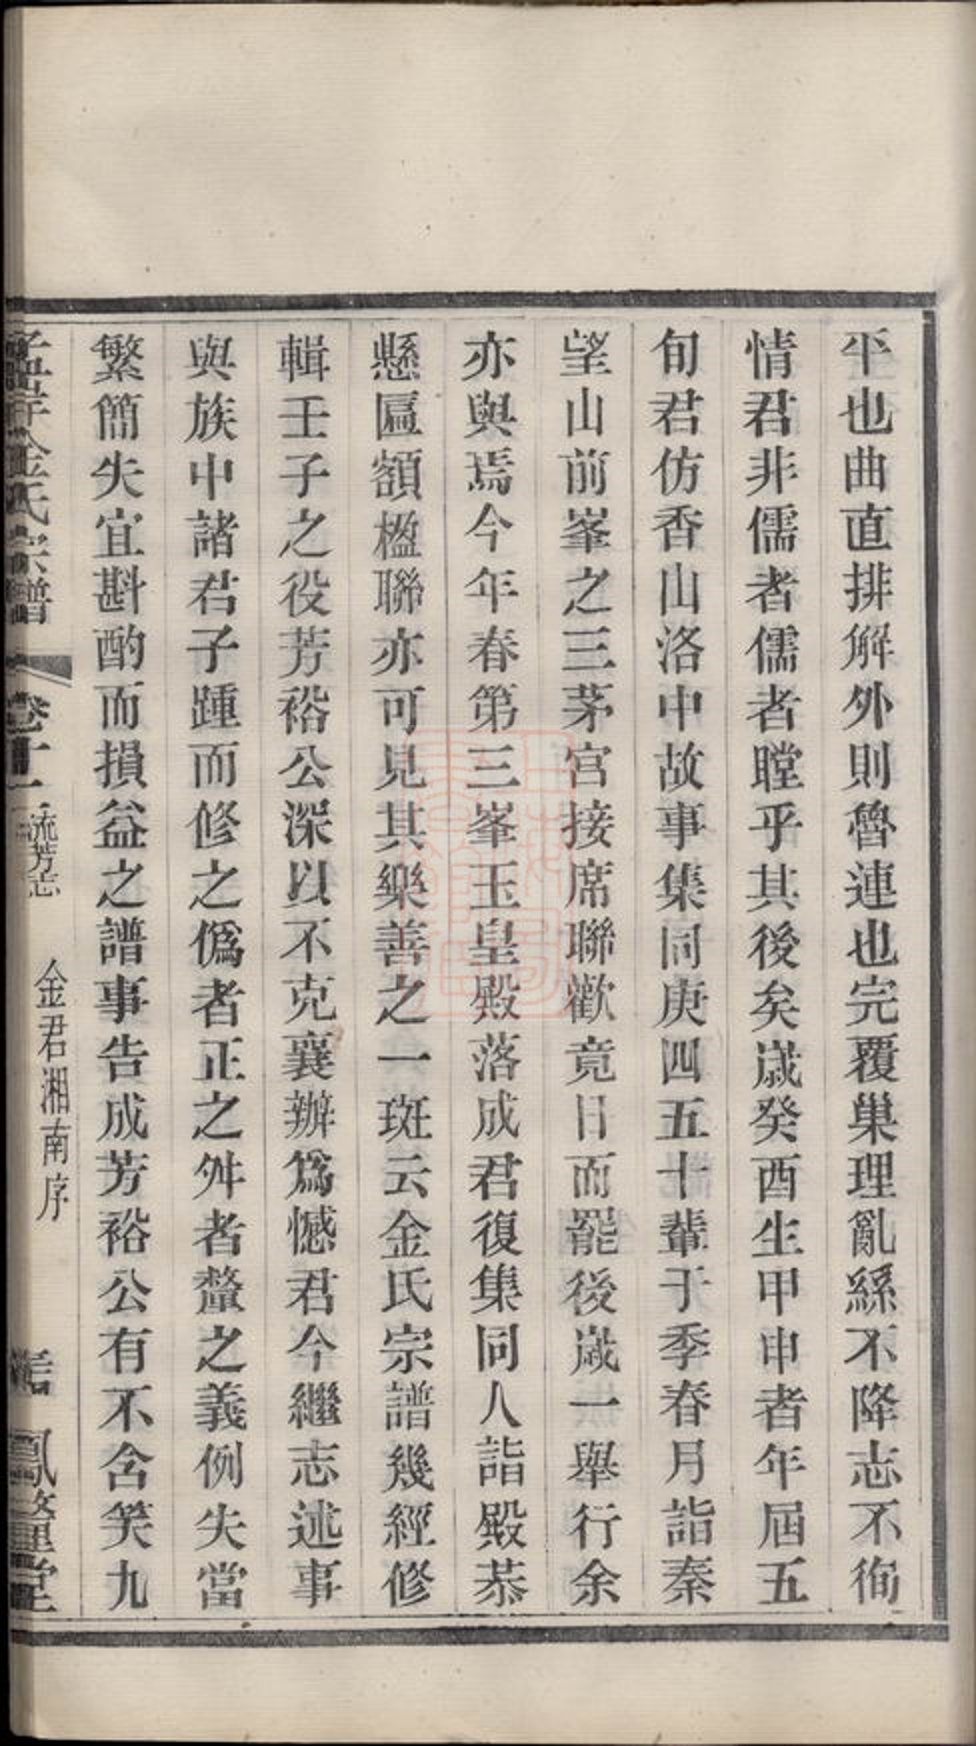 平也曲直排解外則魯連也完覆巢理亂絲不降志不徇
情君非儒者儒者瞠乎其後矣歲癸酉生甲申者年屆五
旬君仿香山洛中故事集同庚四五十輩于季春月詣秦
望山前峯之三茅宮接席聯歡竟日而罷後歲一舉行余
亦與焉今年春第三峯玉皇殿落成君復集同人詣殿恭
懸匾額楹聯亦可見其樂善之一斑云金氏宗譜幾經修
輯壬子之役芳裕公深以不克襄辦爲憾君今繼志述事
與族中諸君子踵而修之僞者正之舛者釐之義例失當
繁簡失宜斟酌而損益之譜事告成芳裕公有不含笑九
金氏宗譜 卷十一 流芳志 金君湘南序 堂